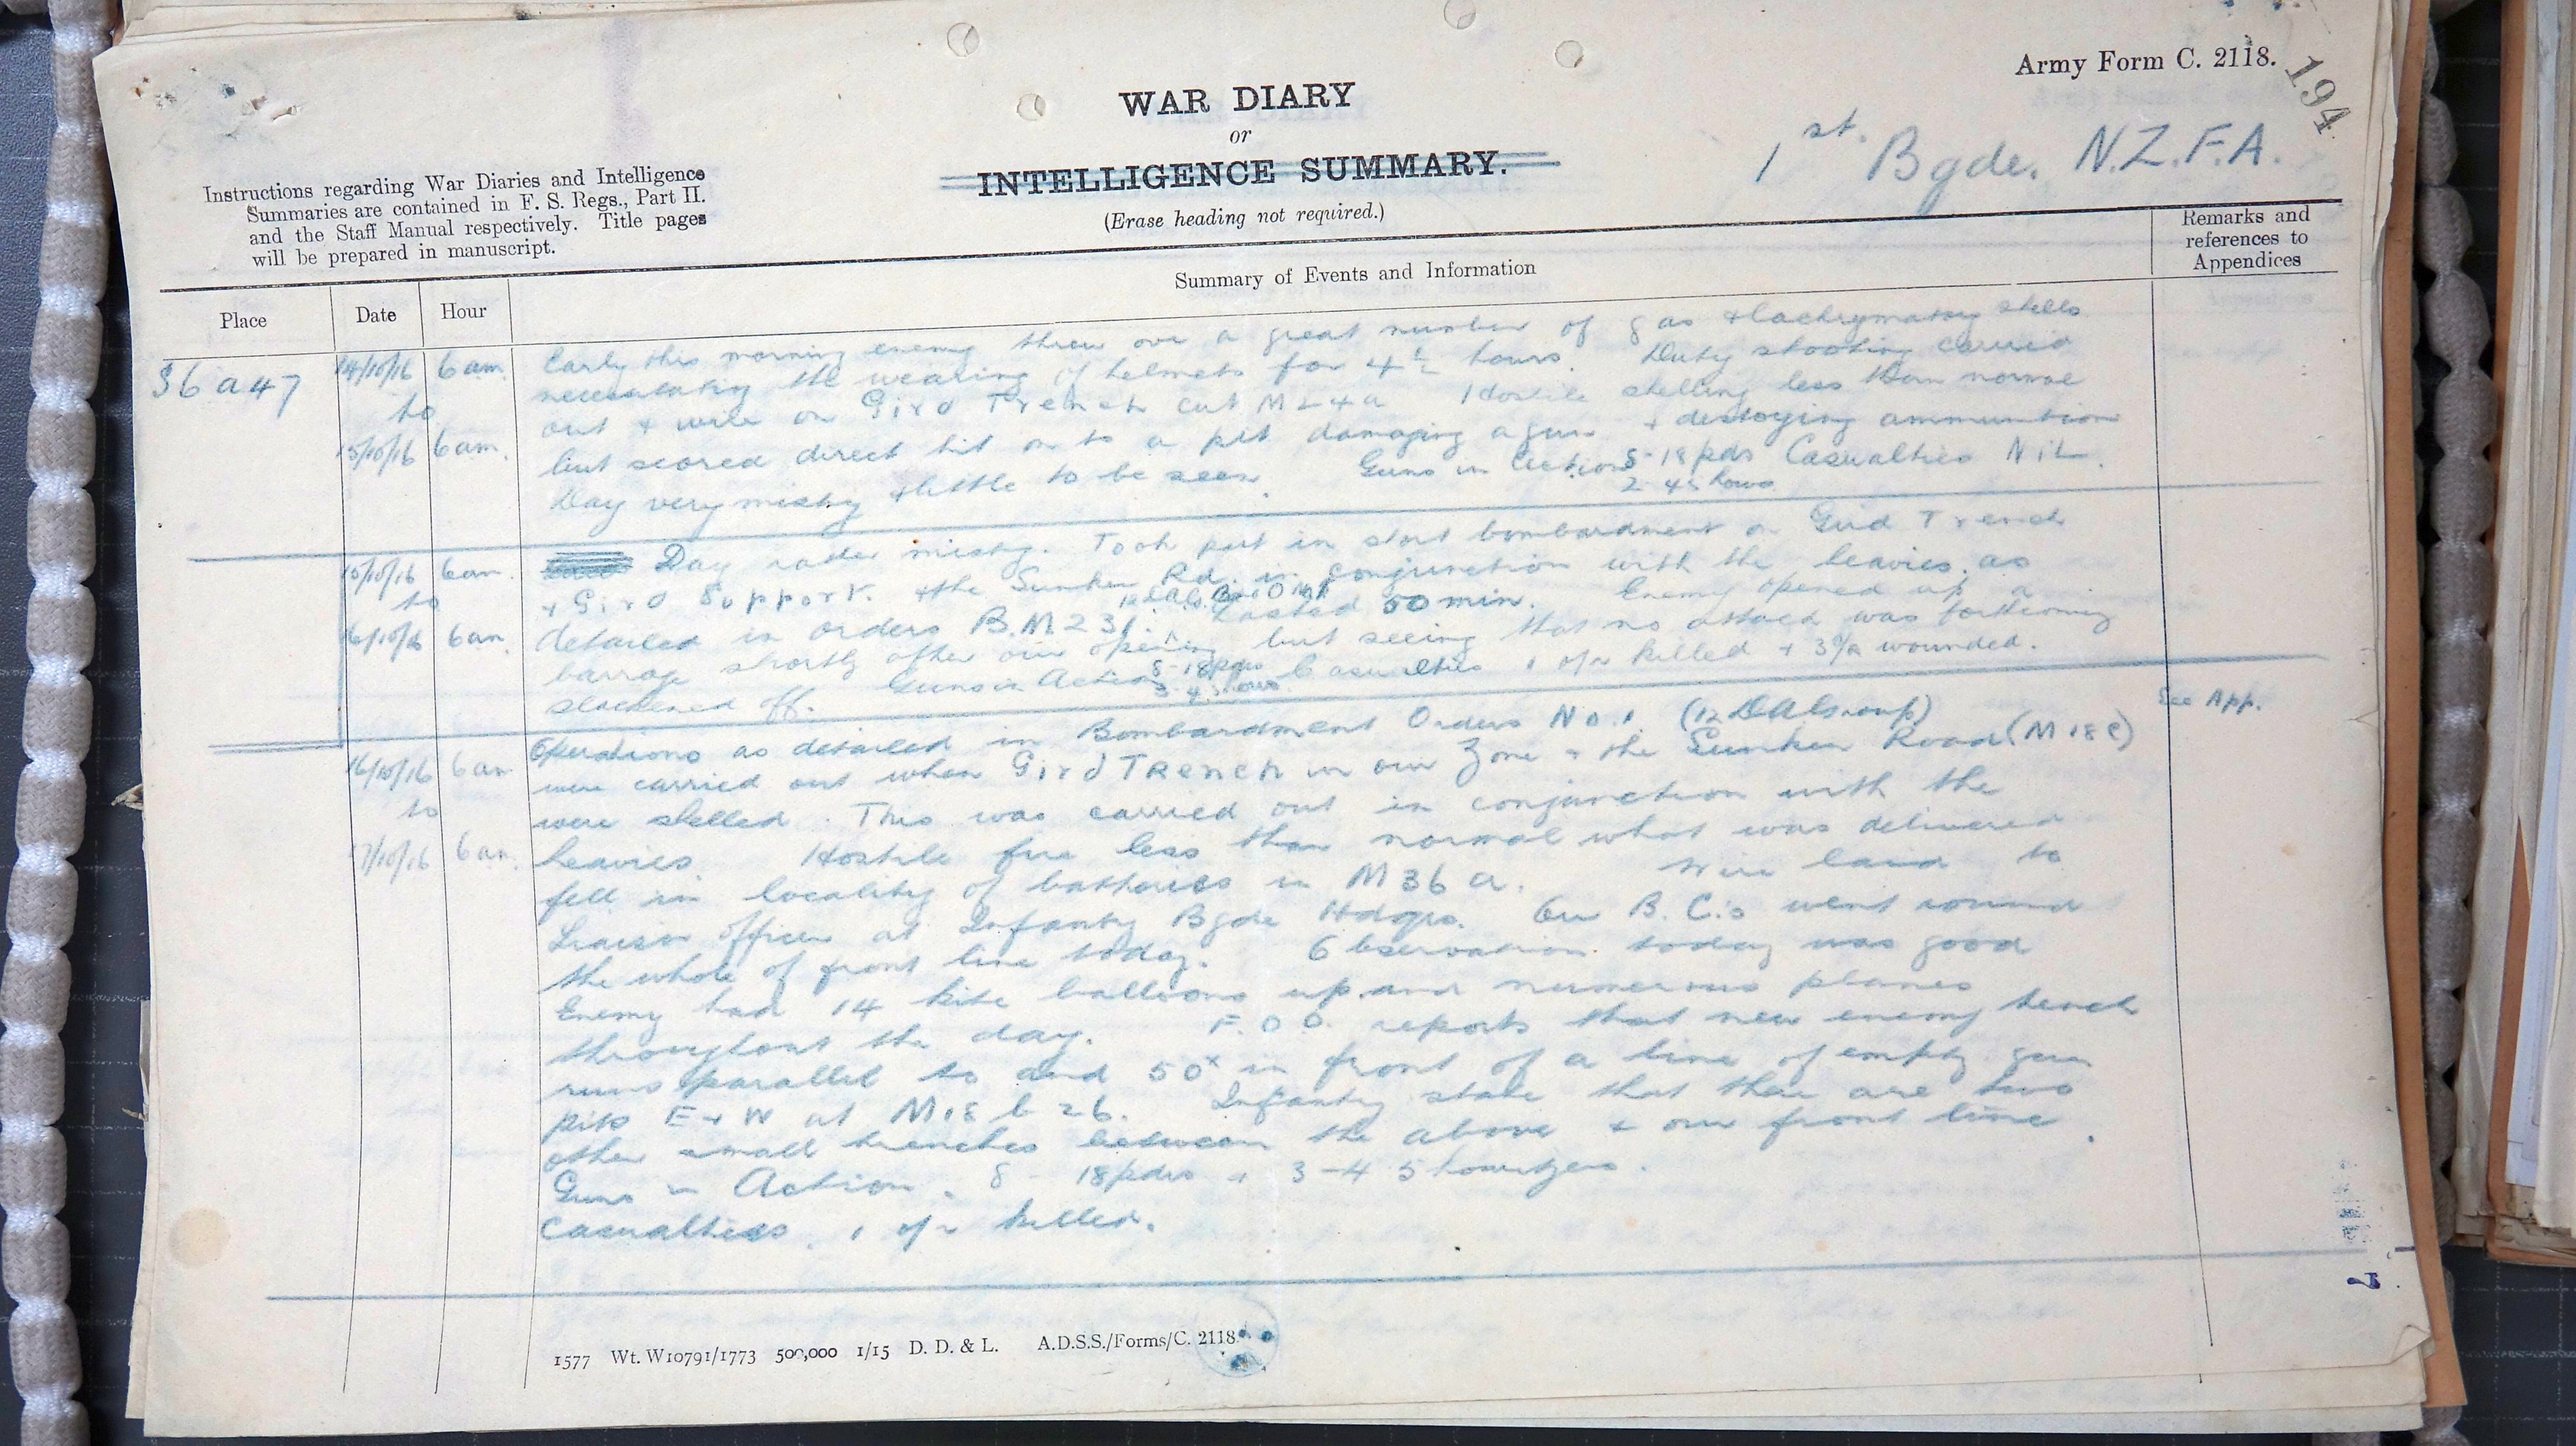 Army Form C. 2118.
194
WAR DIARY
or
INTELLIGENCE SUMMARY.
(Erase heading not required.)
1st. Bgde. N.Z.F.A.
Instructions regarding War Diaries and Intelligence
Summaries are contained in F. S. Regs., Part II.
and the Staff Manual respectively. Title pages
will be prepared in manuscript.
Place
Date
Hour
Summary of Events and Information
Remarks and
references to
Appendices
36 a 47
14/10/16 6 am. Early this morning enemy threw over a great number of gas + lachrymatory shells
to necessitating the wearing of helmets for 4½ hours. Duty shooting carried
out + wire on Gird Trench cut M24a Hostile shelling less than normal
15/10/16 6 am. but scored direct hit on to a pit damaging a gun + destroying ammunition
Day very misty + little to be seen. Guns in Action 8-18 pdrs Casualties NiL.
2 4.5 hows
15/10/16 6 am. Day rather misty. Took part in short bombardment on Gird Trench
to + Gird Support. + the Sunken Rd. in conjunction with the heavies. as
detailed in orders B.M.231. Lasted 50 min. Enemy opened up a
16/10/16 6 am. barrage shortly after our opening but seeing that no attack was forthcoming
slackened off. Guns in Action 8-18 pdrs Casualties 1 o/r killed + 3 o/r wounded.
3 4.5 hows
16/10/16 6 am Operations as detailed in Bombardment Orders No. 1. (12 DA Group) See App.
were carried out when Gird TRench in our Zone + the Sunken Road (M 18 C)
to were shelled. This was carried out in conjunction with the
17/10/16 6 am. heavies. Hostile fire less than normal what was delivered
fell in locality of batteries in M 36 a. Wire laid to
Liaison officer at Infantry Bgde Hdqrs. Our B. C.s went round
the whole of front line today. Observation today was good
Enemy had 14 kite balloons up and numerous planes
throughout the day. F.O.O. reports that new enemy trench
runs parallel to and 50x in front of a line of empty gun
pits E + W at M 18 b 26. Infantry state that there are two
other small trenches between the above + our front line.
Guns in Action. 8 - 18 pdrs + 3 - 4 5 howitzers.
Casualties. 1 o/r killed.
1577 Wt. W10791/1773 500,000 1/15 D. D. & L. A.D.S.S./Forms/C. 2118.